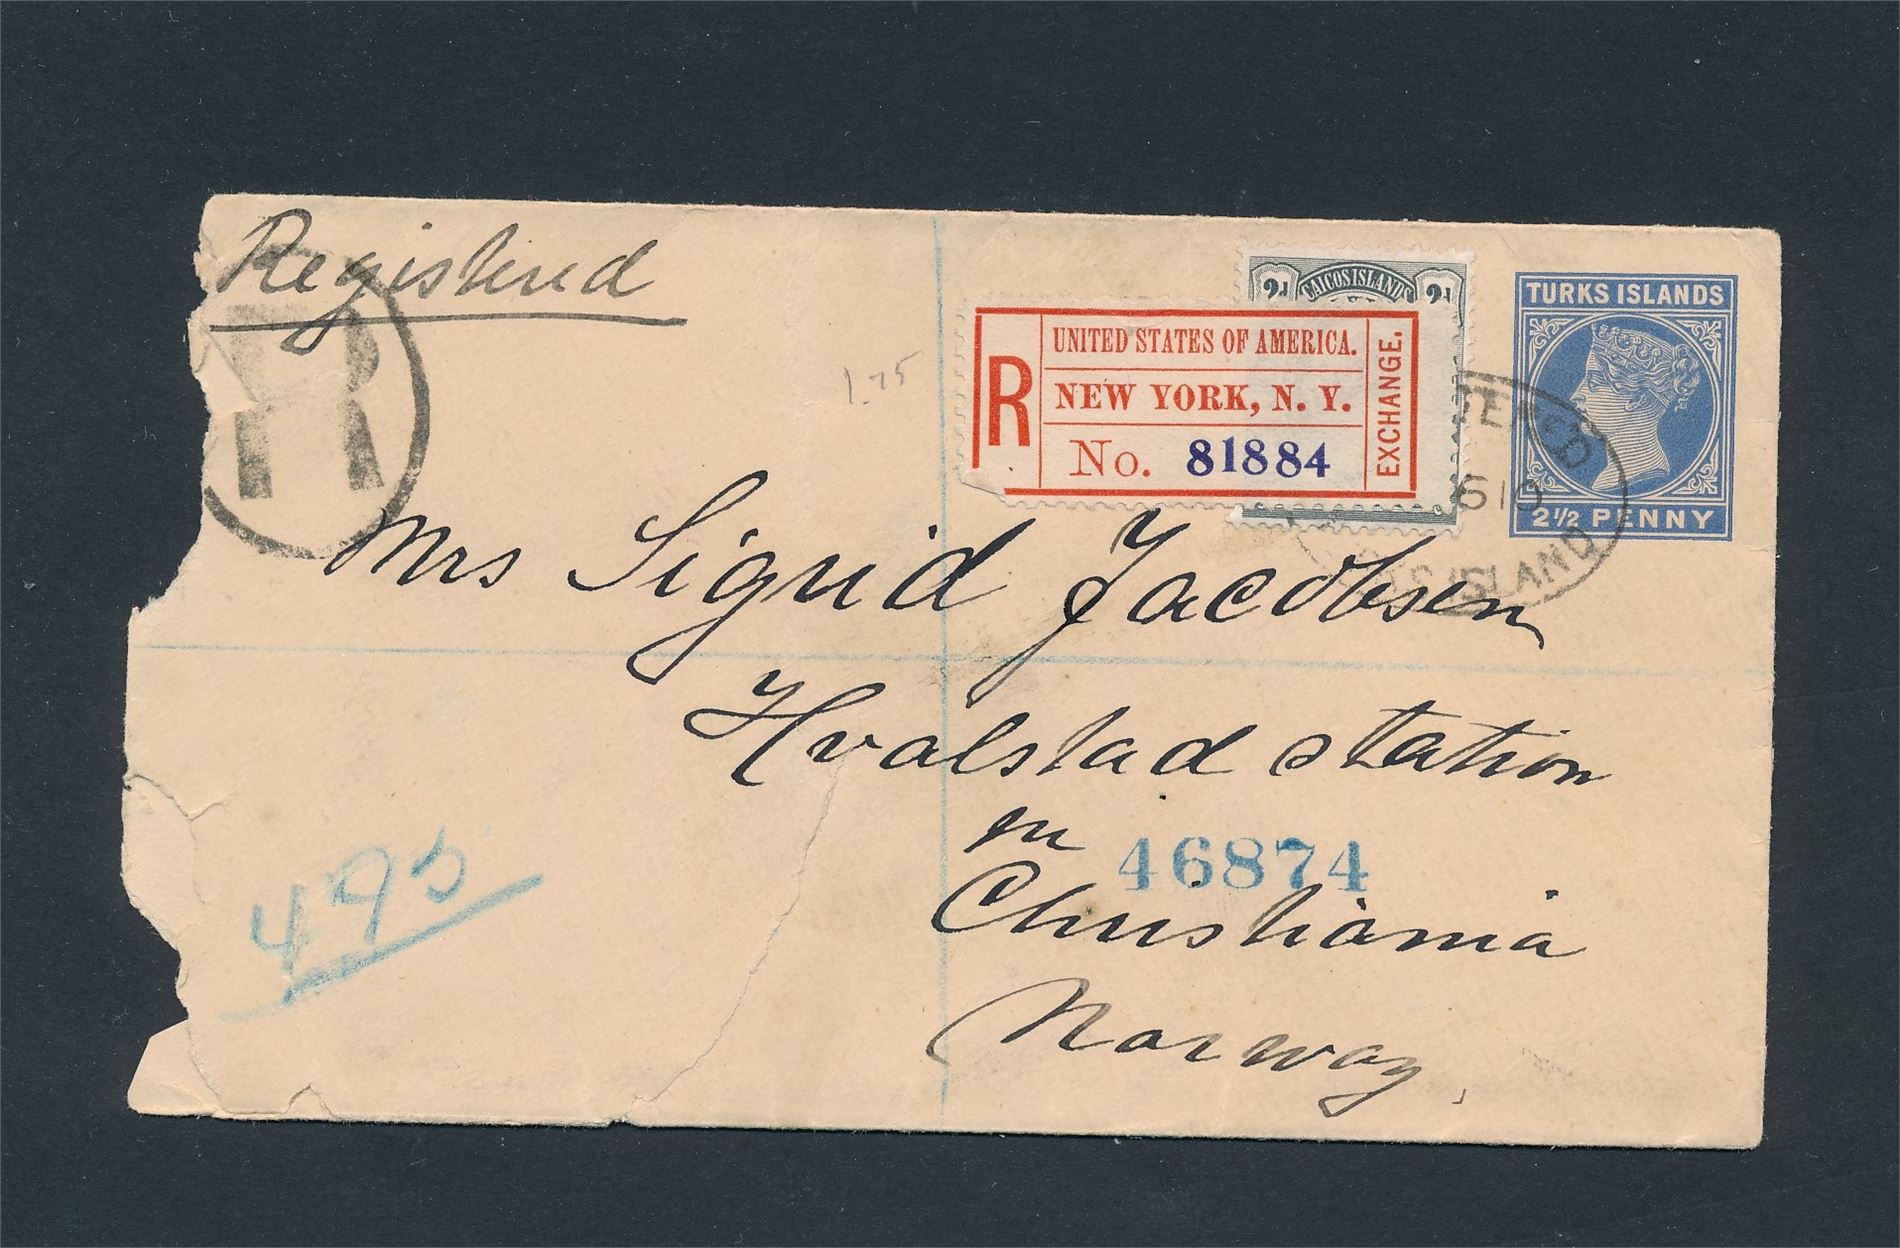 Registered
R
1.75
2d CAICOS ISLANDS 2d
R
UNITED STATES OF AMERICA.
NEW YORK, N. Y.
No. 81884
EXCHANGE.
TURKS ISLANDS
2½ PENNY
610
ISLAND
Mrs Sigrid Jacobsen
Hvalstad station
pr
46874
Christiania
Norway.
495